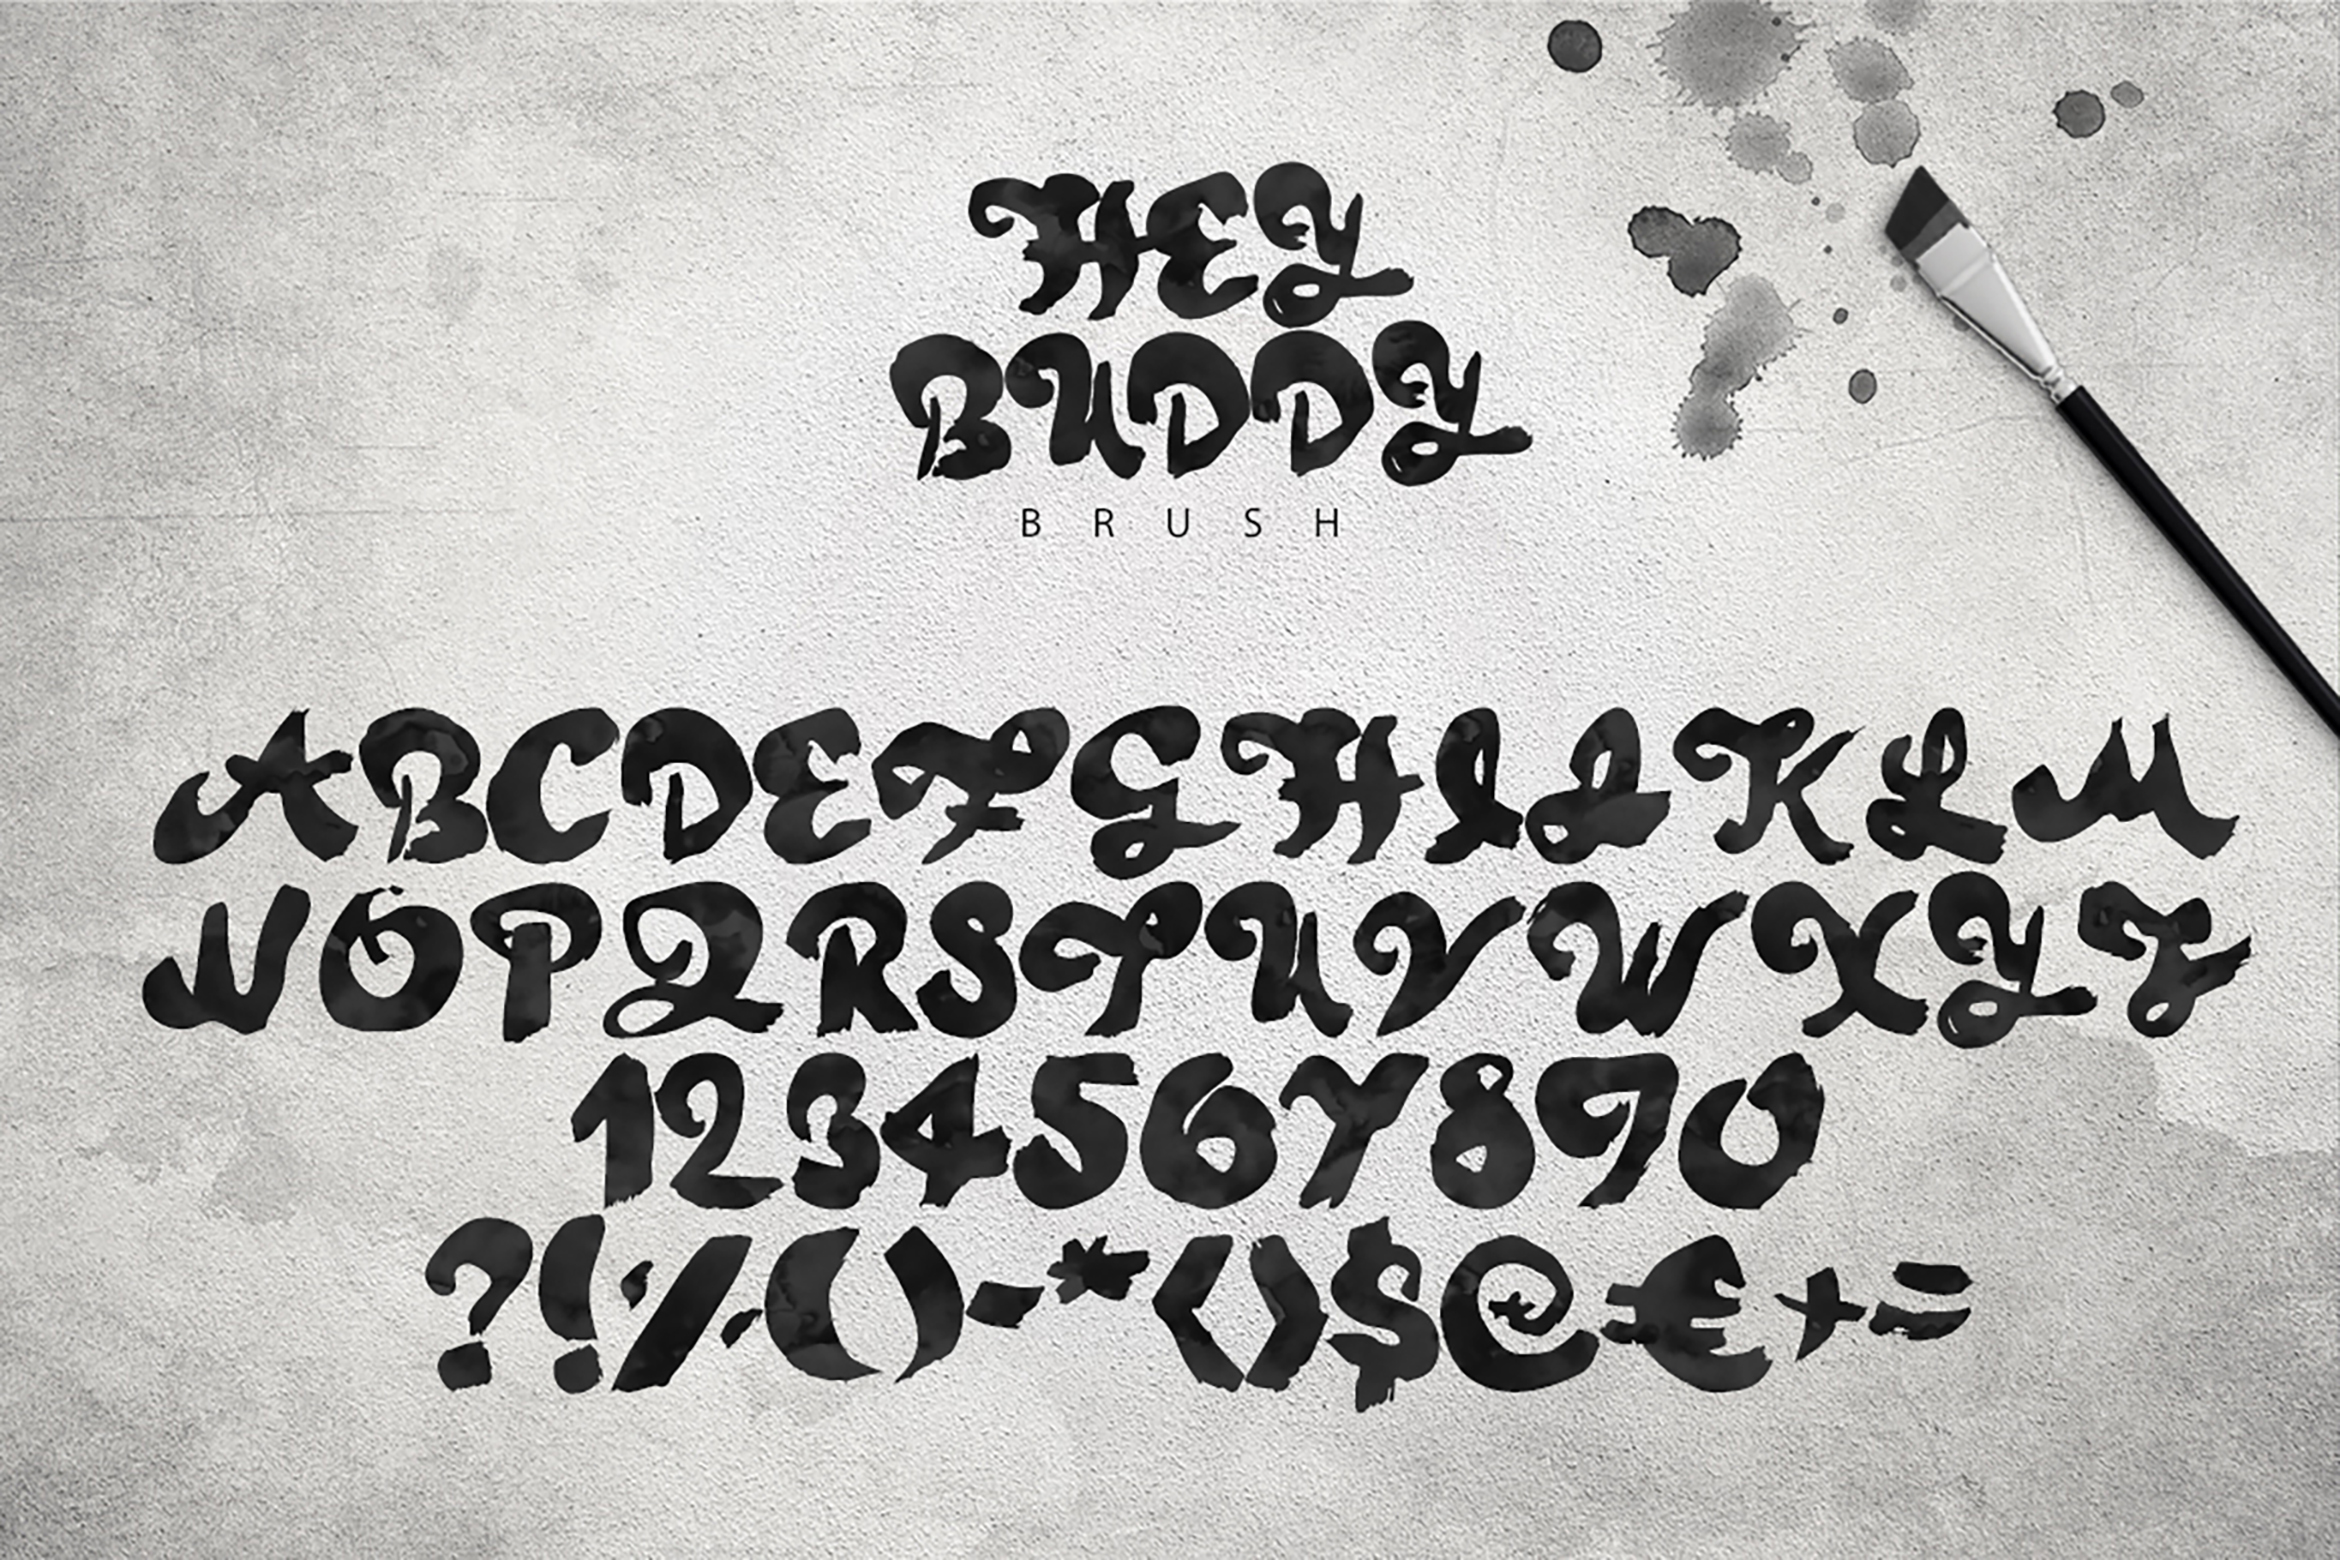 HEY
BUDDY
BRUSH
ABCDEFGHIJKLM
NOPQRSTUVWXYZ
1234567890
?!%()-*<>$@€+=